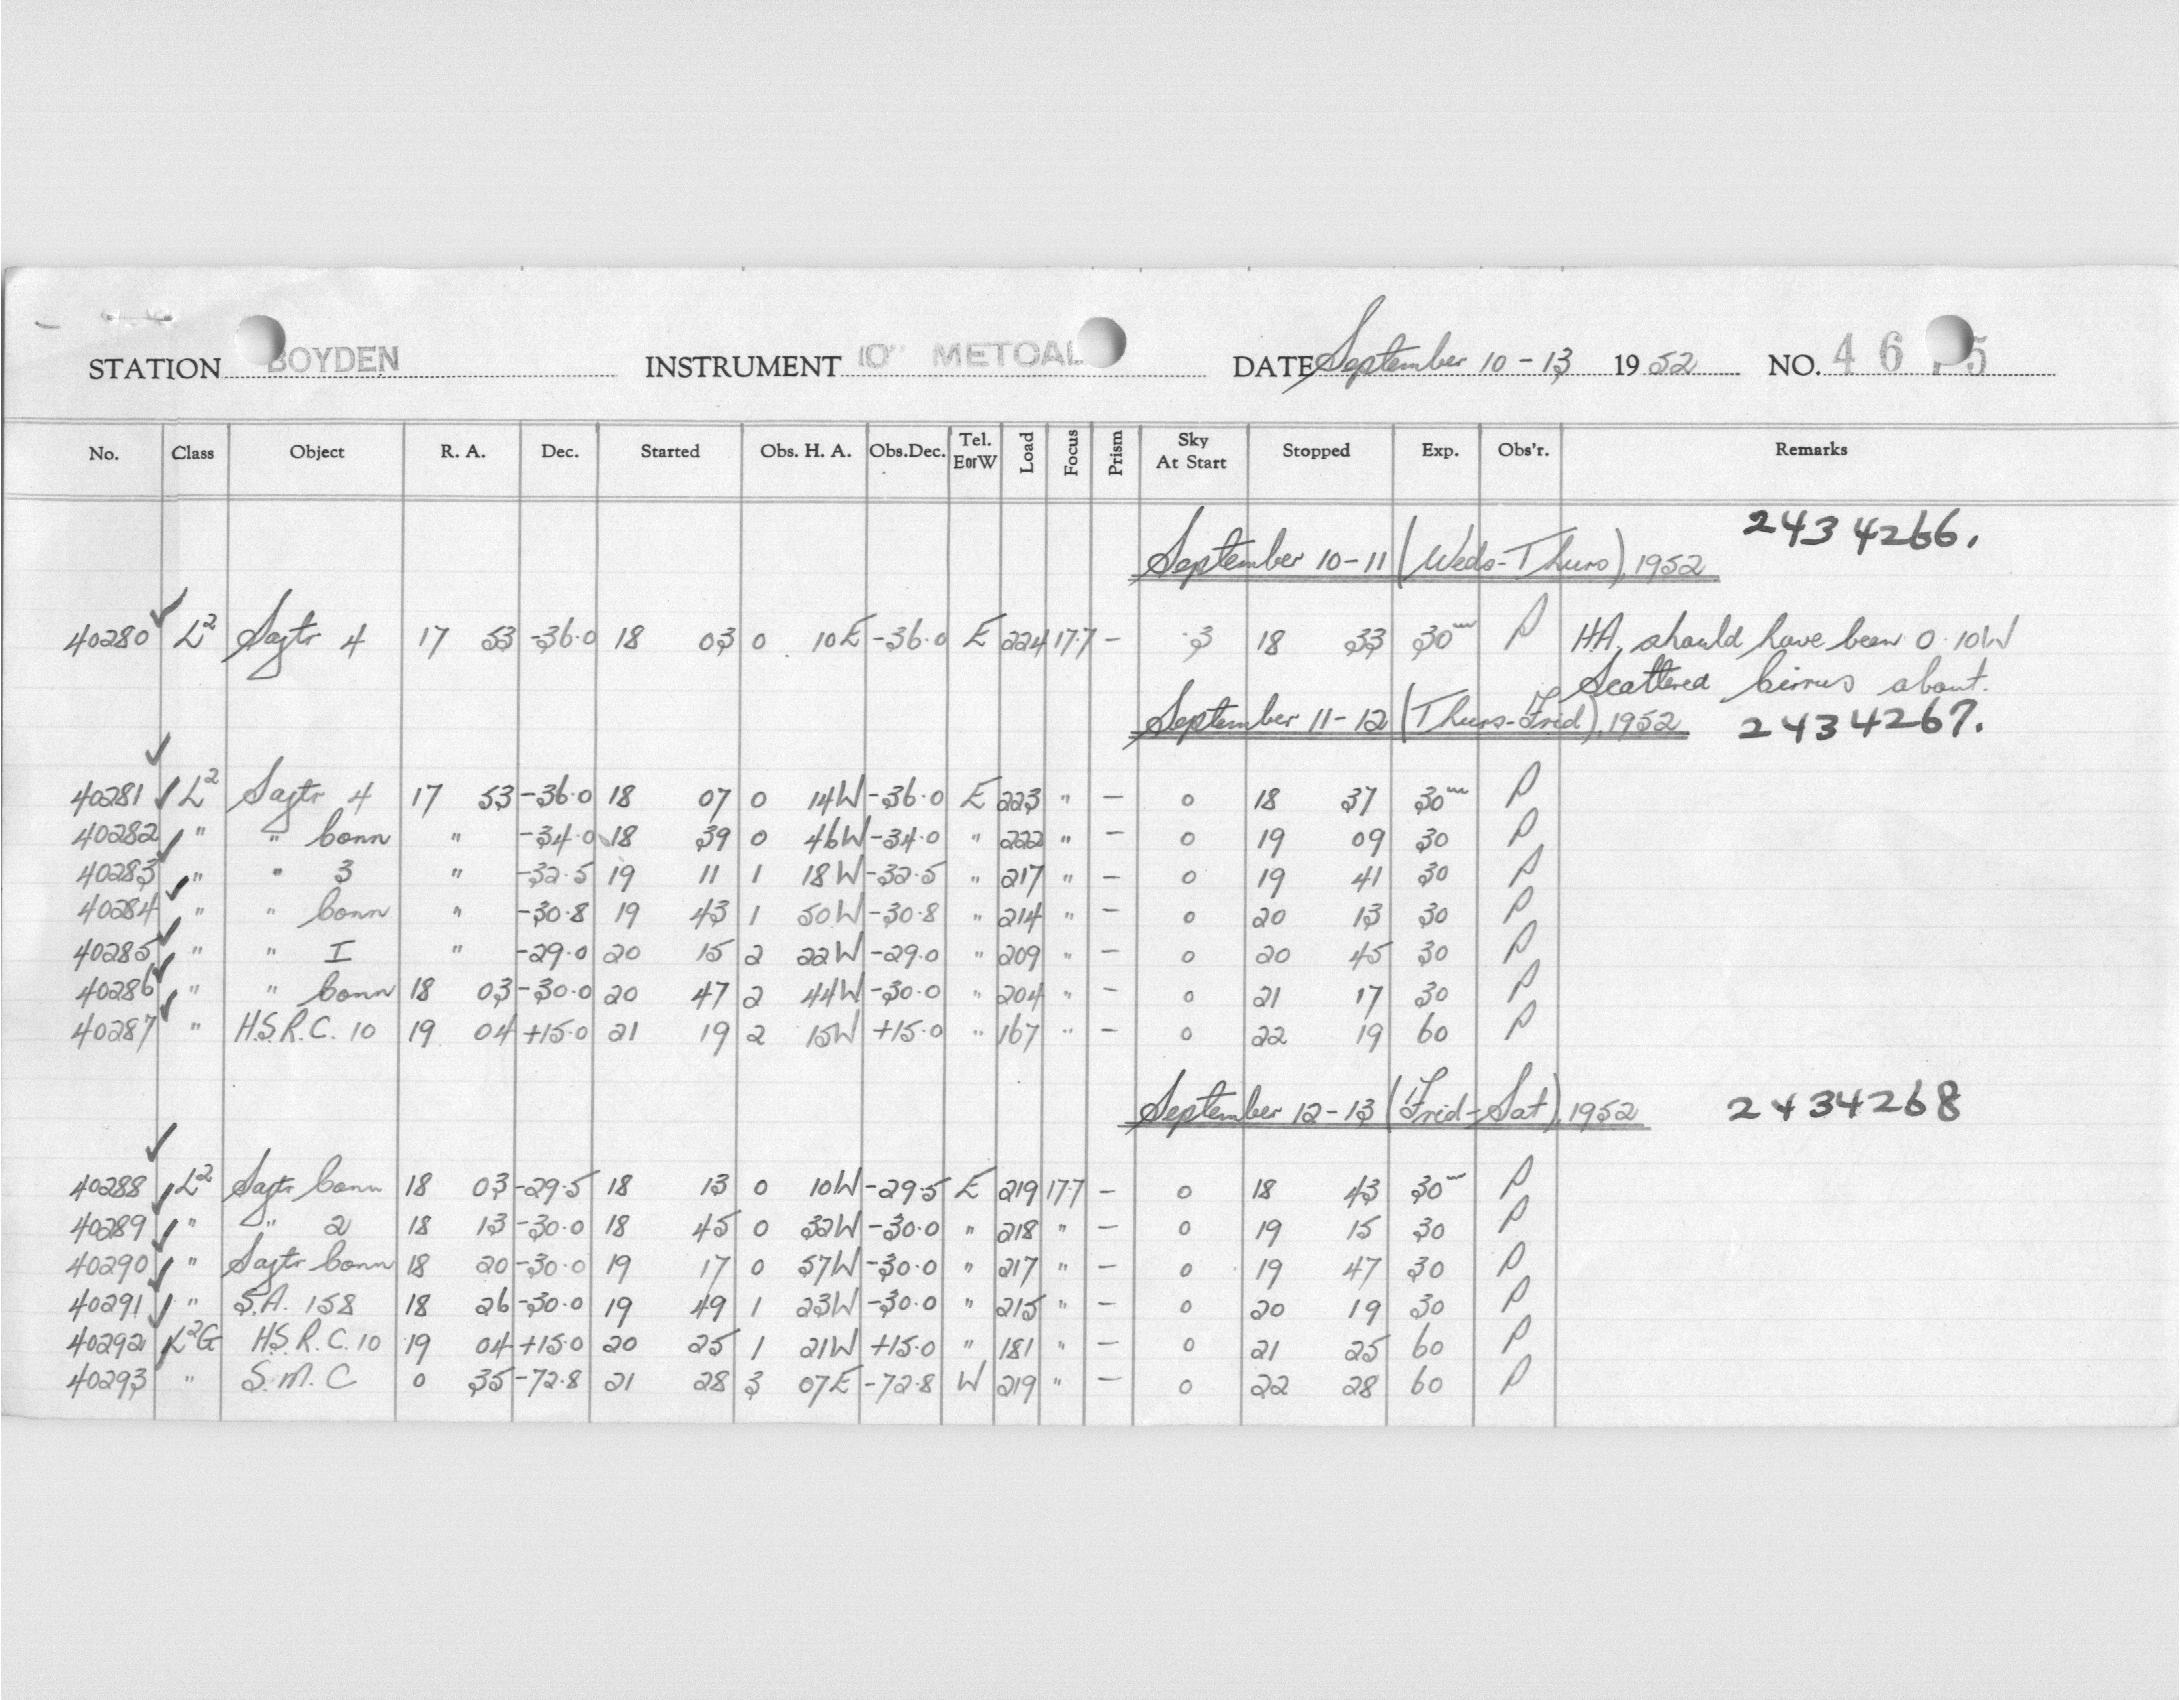 STATION BOYDEN INSTRUMENT 10" METCAL DATE September 10-13 1952 NO. 46 5
No. Class Object R. A. Dec. Started Obs. H. A. Obs.Dec. Tel. EorW Load Focus Prism Sky At Start Stopped Exp. Obs'r. Remarks
2434266.
September 10-11 (Weds-Thurs), 1952
40280 L² Sagtr 4 17 53 -36.0 18 03 0 10E -36.0 E 224 17.7 - 3 18 33 30ᵐ P HA. should have been 0 10W
Scattered Cirrus about.
September 11-12 (Thurs-Frid), 1952 2434267.
40281 L² Sagtr 4 17 53 -36.0 18 07 0 14W -36.0 E 223 " - 0 18 37 30ᵐ P
40282 " " Conn " -34.0 18 39 0 46W -34.0 " 222 " - 0 19 09 30 P
40283 " " 3 " -32.5 19 11 1 18W -32.5 " 217 " - 0 19 41 30 P
40284 " " Conn " -30.8 19 43 1 50W -30.8 " 214 " - 0 20 13 30 P
40285 " " I " -29.0 20 15 2 22W -29.0 " 209 " - 0 20 45 30 P
40286 " " Conn 18 03 -30.0 20 47 2 44W -30.0 " 204 " - 0 21 17 30 P
40287 " H.S.R.C. 10 19 04 +15.0 21 19 2 15W +15.0 " 167 " - 0 22 19 60 P
September 12-13 (Frid-Sat), 1952 2434268
40288 L² Sagtr Conn 18 03 -29.5 18 13 0 10W -29.5 E 219 17.7 - 0 18 43 30ᵐ P
40289 " " 2 18 13 -30.0 18 45 0 32W -30.0 " 218 " - 0 19 15 30 P
40290 " Sagtr Conn 18 20 -30.0 19 17 0 57W -30.0 " 217 " - 0 19 47 30 P
40291 " S.A. 158 18 26 -30.0 19 49 1 23W -30.0 " 215 " - 0 20 19 30 P
40292 L²G H.S.R.C. 10 19 04 +15.0 20 25 1 21W +15.0 " 181 " - 0 21 25 60 P
40293 " S.M.C 0 35 -72.8 21 28 3 07E -72.8 W 219 " - 0 22 28 60 P